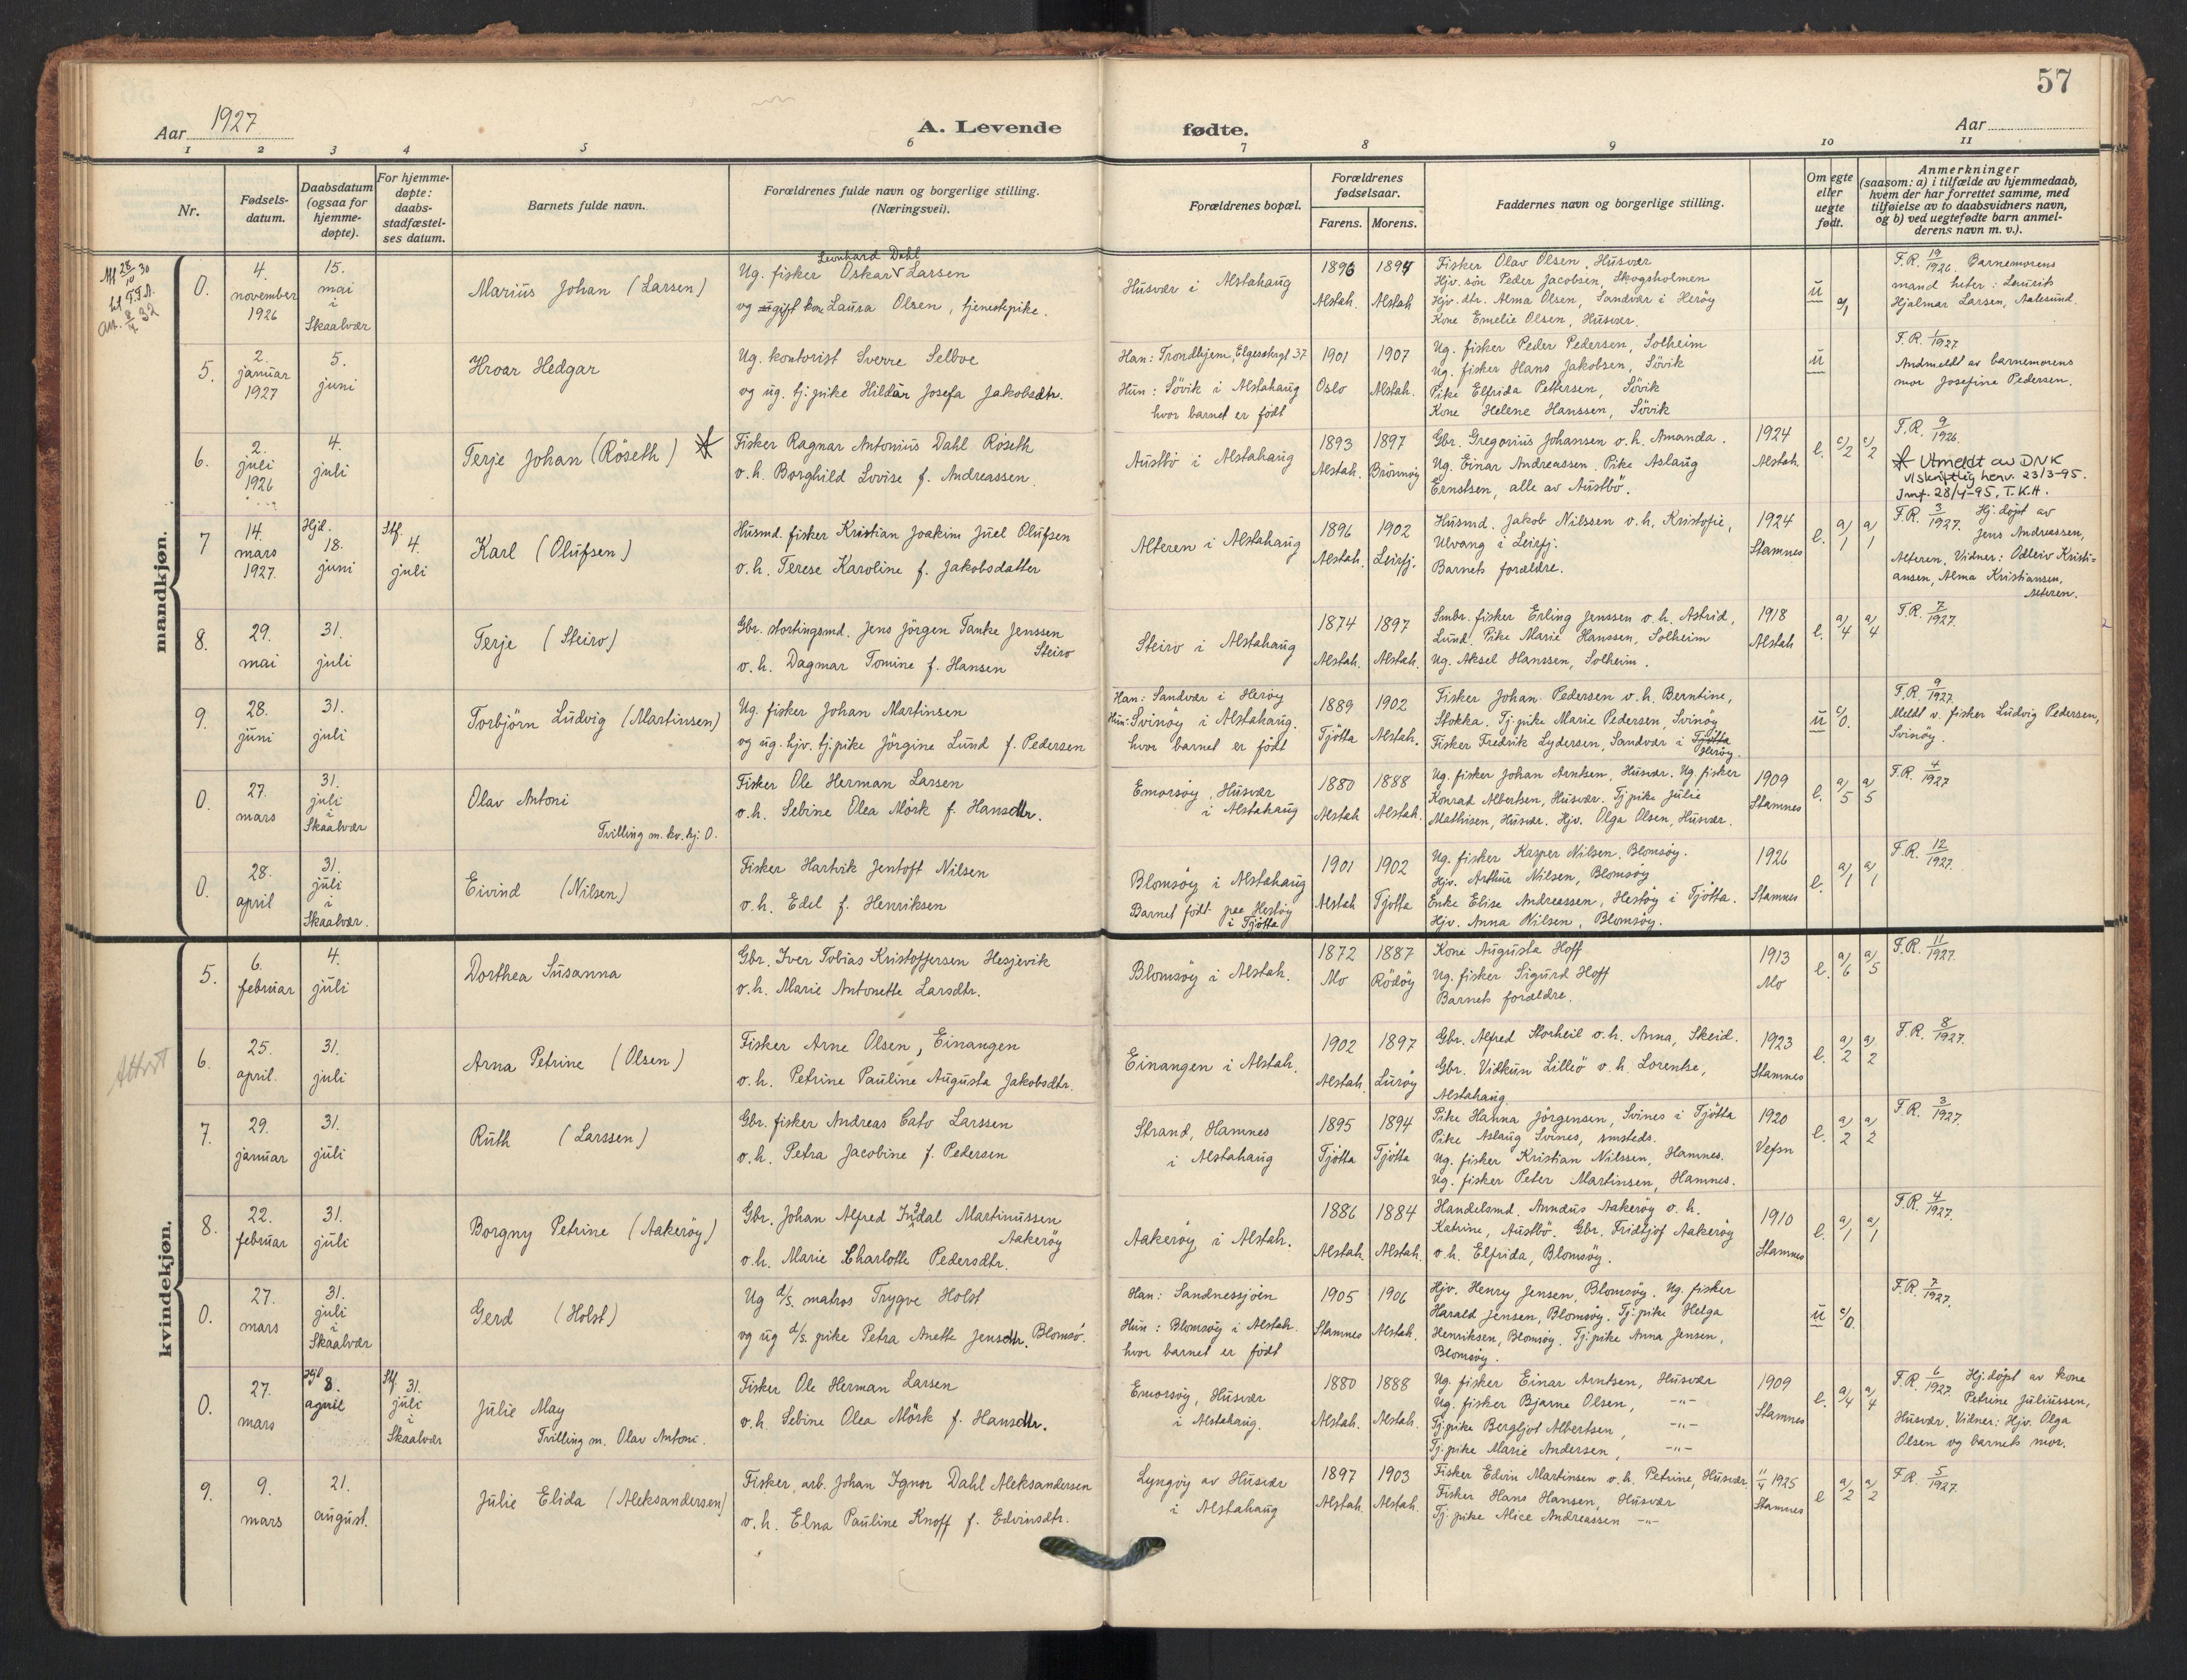 57
Aar 1927
A. Levende fødte.
Aar
1 2 3 4 5 6 7 8 9 10 11
Nr.
Fødselsdatum.
Daabsdatum (ogsaa for hjemmedøpte).
For hjemmedøpte: daabsstadfæstelses datum.
Barnets fulde navn.
Forældrenes fulde navn og borgerlige stilling. (Næringsvei).
Forældrenes bopæl.
Forældrenes fødselsaar.
Farens. Morens.
Faddernes navn og borgerlige stilling.
Om egte eller uegte født.
Anmerkninger
(saasom: a) i tilfælde av hjemmedaab,
hvem der har forrettet samme, med
tilføielse av to daabsvidners navn,
og b) ved uegtefødte barn anmel-
derens navn m. v.).
mandkjøn.
0.
4. november 1926
15. mai i Skaalvær
Marius Johan (Larsen)
Leonhard Dahl
Ug. fisker Oskar Larsen
og ugift kone Laura Olsen, tjenestepike.
Husvær i Alstahaug
1896 Alstah.
1894 Alstah
Fisker Olav Olsen, Husvær
Hjv. søn Peder Jacobsen, Skogsholmen
Hjv. dtr. Alma Olsen, Sandvær i Herøy
Kone Emelie Olsen, Husvær.
u
a/1
F.R. 19/1926. Barnemorens
mand heter: Laurits
Hjalmar Larsen, Aalesund.
5.
2. januar 1927
5. juni
Hroar Hedgar
Ug. kontorist Sverre Selboe
og ug. tj. pike Hildur Josefa Jakobsdtr.
Han: Trondhjem, Elgesetergt 37
Hun: Søvik i Alstahaug
hvor barnet er født
1901 Oslo
1907 Alstah.
Ug. fisker Peder Pedersen, Solheim
Ug. fisker Hans Jakobsen, Søvik
Pike Elfrida Pettersen, Søvik
Kone Helene Hanssen, Søvik
u
F.R. 1/1927
Andmeldt av barnemorens
mor Josefine Pedersen.
6.
2. juli 1926
4. juli
Terje Johan (Röseth)
Fisker Ragnar Antonius Dahl Røseth
o.h. Borghild Lovise f. Andreassen.
Austbö i Alstahaug
1893 Alstah.
1897 Brönnöy
Gbr. Gregorius Johansen o.h. Amanda.
Ug. Einar Andreassen. Pike Aslaug
Ernstsen, alle av Austbö.
1924 Alstah.
e. c/2 c/2
F.R. 9/1926.
Utmeldt av DNK
v/skriftlig henv. 23/3-95.
Innf. 28/4-95, T.K.H.
7
14. mars 1927.
Hjd. 18. juni
Stf. 4. juli
Karl (Olufsen)
Husmd. fisker Kristian Joakim Juel Olufsen
o.h. Terese Karoline f. Jakobsdatter
Alteren i Alstahaug
1896 Alstah.
1902 Leirfj.
Husmd. Jakob Nilssen o.h. Kristofie,
Ulvang i Leirfj.
Barnets forældre.
1924 Stamnes
e. a/1 a/1
F.R. 3/1927. Hj. døpt av
Jens Andreassen,
Alteren. Vidner: Odleiv Kristi-
ansen, Alma Kristiansen,
Alteren.
8.
29. mai
31. juli
Terje (Steiro)
Gbr. stortingsmd. Jens Jörgen Tanke Jenssen
Steiro
o.h. Dagmar Tomine f. Hansen
Steiro i Alstahaug
1874 Alstah.
1897 Alstah.
Smbr. fisker Erling Jenssen o.h. Astrid,
Lund. Pike Marie Hanssen, Solheim
Ug. Aksel Hanssen, Solheim.
1918 Alstah
e. a/4 a/4
F.R. 7/1927.
9.
28. juni
31. juli
Torbjörn Ludvig (Martinsen)
Ug. fisker Johan Martinsen
og ug. hjv. tj. pike Jörgine Lund f. Pedersen
Han: Sandvær i Herøy
Hun: Svinöy i Alstahaug.
hvor barnet er født
1889 Tjötta
1902 Alstah.
Fisker Johan Pedersen o.h. Berntine,
Stokka. Tj. pike Marie Pedersen, Svinöy
Fisker Fredrik Lydersen, Sandvær i Tjötta
Herøy.
u c/0.
F.R. 9/1927.
Meldt v. fisker Ludvig Pedersen,
Svinöy.
0.
27. mars
31. juli i Skaalvær
Olav Antoni
Tvilling m. kv. kj. 0.
Fisker Ole Herman Larsen
o.h. Sebine Olea Mörk f. Hansdtr.
Emorsøy, Husvær
i Alstahaug
1880 Alstah
1888 Alstah.
Ug. fisker Johan Arntsen, Husvær. Ug. fisker
Konrad Albertsen, Husvær. Tj. pike Julie
Mathisen, Husvær. Hjv. Olga Olsen, Husvær.
1909 Stamnes
e. a/5 a/5
F.R. 4/1927
0.
28. april
31. juli i Skaalvær.
Eivind (Nilsen)
Fisker Hartvik Jentoft Nilsen
o.h. Edel f. Henriksen
Blomsöy i Alstahaug
Barnet født paa Hestöy
i Tjötta
1901 Alstah
1902 Tjötta
Ug. fisker Kasper Nilsen. Blomsöy.
Hjv. Arthur Nilsen, Blomsöy
Enke Elise Andreassen, Hestöy i Tjötta.
Hjv. Anna Nilsen, Blomsöy.
1926 Stamnes
e. a/1 a/1
F.R. 12/1927.
kvindekjøn.
5.
6. februar
4. juli
Dorthea Susanna
Gbr. Iver Tobias Kristoffersen Hesjevik
o.h. Marie Antonette Larsdtr.
Blomsöy i Alstah.
1872 Mo
1887 Rödöy
Kone Augusta Hoff
Ug. fisker Sigurd Hoff
Barnets forældre.
1913 Mo
e. a/6 a/5
F.R. 11/1927.
6.
25. april.
31. juli
Arna Petrine (Olsen)
Fisker Arne Olsen, Einangen
o.h. Petrine Pauline Augusta Jakobsdtr.
Einangen i Alstah.
1902 Alstah.
1897 Luröy
Gbr. Alfred Storheil o.h. Anna, Skeid.
Gbr. Vidkun Lilleö o.h. Lorentse,
Alstahaug.
1923 Stamnes
e. a/2 a/2
F.R. 8/1927.
7.
29. januar
31. juli
Ruth (Larssen)
Gbr. fisker Andreas Cato Larssen
o.h. Petra Jacobine f. Pedersen
Strand, Hamnes
i Alstahaug
1895 Tjötta
1894 Tjötta
Pike Hanna Jörgensen, Svines i Tjötta
Pike Aslaug Svines, smsteds.
Ug. fisker Kristian Nilssen, Hamnes.
Ug. fisker Peter Martinsen, Hamnes.
1920 Vefsn
e. a/2 a/2
F.R. 3/1927.
8.
22. februar
31. juli
Borgny Petrine (Aakeröy)
Gbr. Johan Alfred Indal Martinussen
Aakeröy
o.h. Marie Charlotte Pedersdtr.
Aakeröy i Alstah.
1886 Alstah.
1884 Alstah.
Handelsmd. Annæus Aakeröy o.h.
Katrine, Austbö. Gbr. Fridtjof Aakeröy
o.h. Elfrida, Blomsöy.
1910 Stamnes
e. a/1 a/1
F.R. 4/1927.
0.
27. mars
31. juli i Skaalvær
Gerd (Holst)
Ug d/s. matros Trygve Holst
og ug d/s. pike Petra Anette Jensdtr. Blomsö.
Han: Sandnessjöen
Hun: Blomsöy i Alstah.
hvor barnet er født
1905 Stamnes
1906 Alstah.
Hjv. Henry Jensen, Blomsöy. Ug. fisker
Harald Jensen, Blomsöy. Tj. pike Helga
Henriksen, Blomsöy. Tj. pike Anna Jensen,
Blomsöy.
u c/0.
F.R. 7/1927.
0.
27. mars
Hjd 8. april
Stf. 31. juli i Skaalvær
Julie May
Tvilling m. Olav Antoni.
Fisker Ole Herman Larsen
o.h. Sebine Olea Mörk f. Hansdtr.
Emorsøy, Husvær
i Alstahaug.
1880 Alstah.
1888 Alstah.
Ug. fisker Einar Arntsen, Husvær
Ug. fisker Bjarne Olsen, -"-
Tj. pike Bergljot Albertsen, -"-
Tj. pike Marie Andersen, -"-
1909 Stamnes
e. a/4 a/4
F.R. 6/1927. Hj. døpt av kone
Petrine Juliussen,
Husvær. Vidner: Hjv. Olga
Olsen og barnets mor.
9.
9. mars
21. august.
Julie Elida (Aleksandersen)
Fisker, arb. Johan Ignor Dahl Aleksandersen
o.h. Elna Pauline Knoff f. Edvinsdtr.
Lyngöy av Husvær
i Alstahaug
1897 Alstah.
1903 Alstah.
Fisker Edvin Martinsen o.h. Petrine, Husvær
Fisker Hans Hansen, Husvær
Tj. pike Alice Andreassen -"-
11/4 1925 Stamnes
e a/2 a/2
F.R. 5/1927.